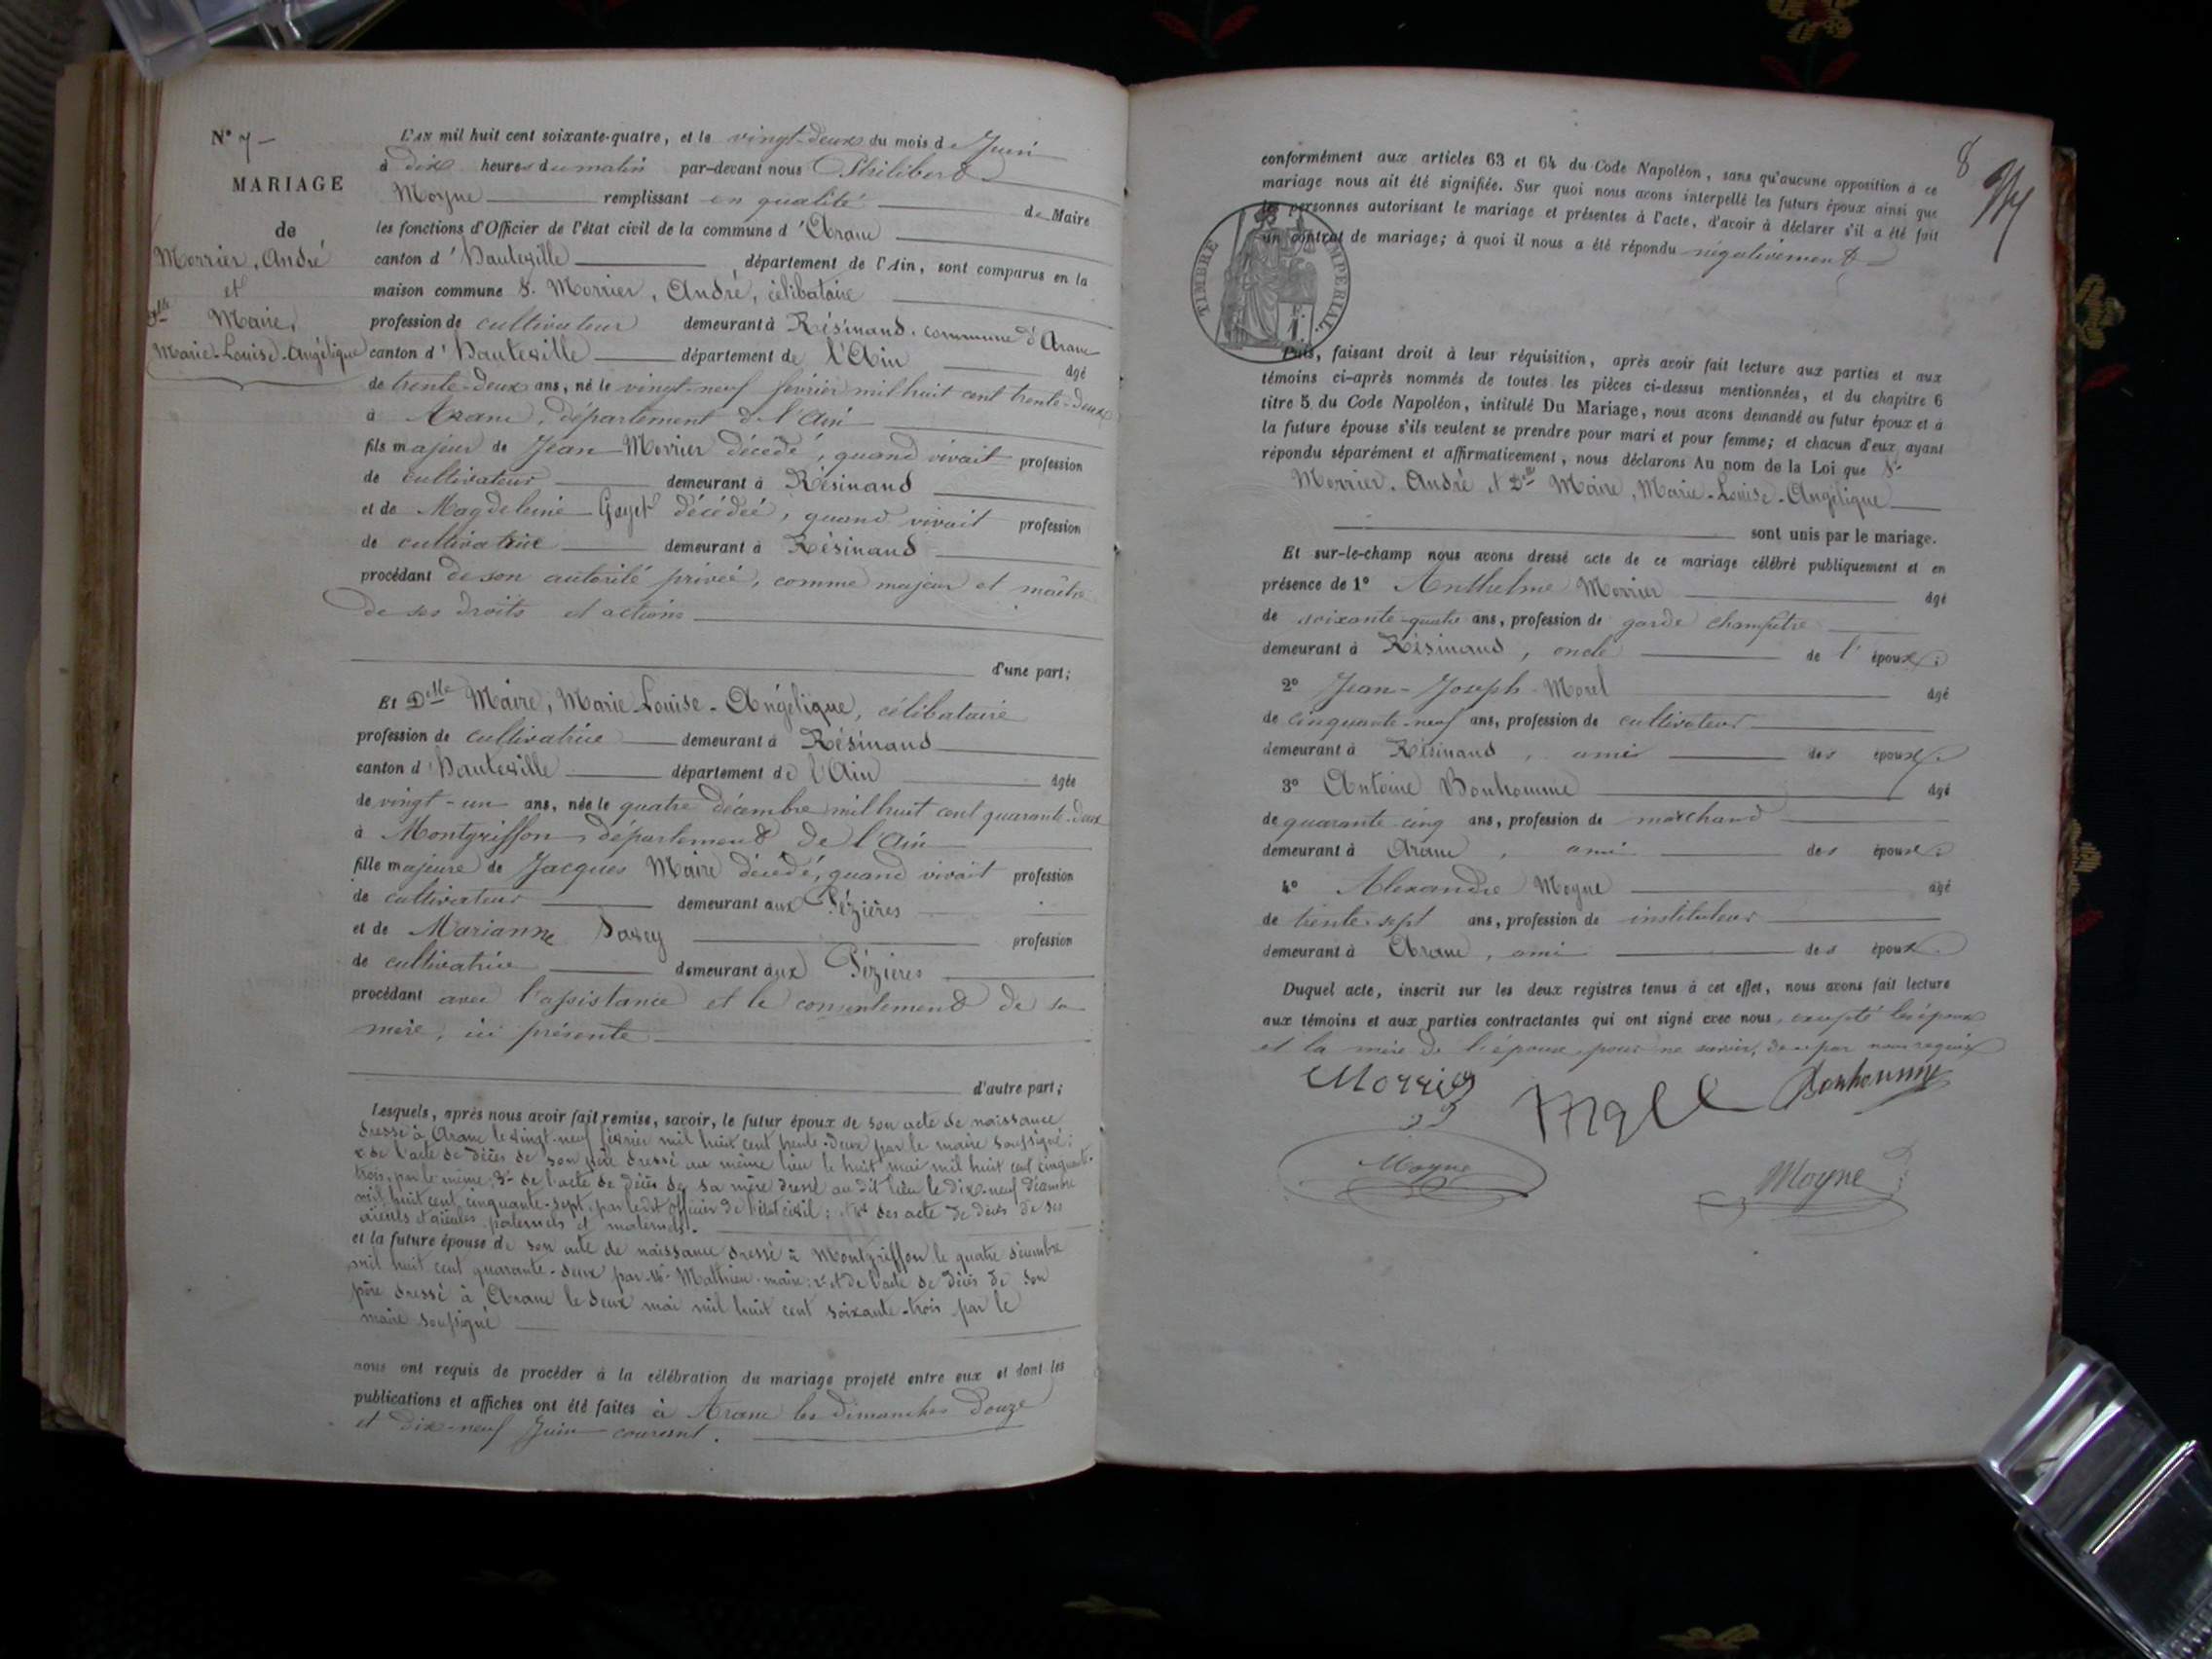 N° 7 -
MARIAGE
de
Morrier, André
et
Dlle Maire,
Marie-Louise-Angélique
L'AN mil huit cent soixante-quatre, et le vingt-deux du mois de Juin
à dix heures du matin par-devant nous Philibert
Moyne remplissant en qualité de Maire
les fonctions d'Officier de l'état civil de la commune d'Aranc
canton d'Hauteville département de l'Ain, sont comparus en la
maison commune S. Morrier, André, célibataire
profession de cultivateur demeurant à Résinand, commune d'Aranc
canton d'Hauteville département de l'Ain âgé
de trente-deux ans, né le vingt-neuf février mil huit cent trente-deux
à Aranc, département de l'Ain
fils majeur de Jean Morrier décédé, quand vivait profession
de cultivateur demeurant à Résinand
et de Magdeleine Gayet décédée, quand vivait profession
de cultivatrice demeurant à Résinand
procédant de son autorité privée, comme majeur et maître
de ses droits et actions
d'une part;
Et Dlle Maire, Marie-Louise-Angélique, célibataire
profession de cultivatrice demeurant à Résinand
canton d'Hauteville département de l'Ain âgée
de vingt-un ans, née le quatre décembre mil huit cent quarante-deux
à Montgriffon, département de l'Ain
fille majeure de Jacques Maire décédé, quand vivait profession
de cultivateur demeurant aux Pézières
et de Marianne Savey profession
de cultivatrice demeurant aux Pézières
procédant avec l'assistance et le consentement de sa
mère, ici présente
d'autre part;
Lesquels, après nous avoir fait remise, savoir, le futur époux de son acte de naissance
dressé à Aranc le vingt-neuf février mil huit cent trente-deux par le maire soussigné;
2° de l'acte de décès de son père dressé au même lieu le huit mai mil huit cent cinquante-
trois, par le même; 3° de l'acte de décès de sa mère dressé au dit lieu le dix-neuf décembre
mil huit cent cinquante-sept, par le dit officier de l'état civil; 4° des acte de décès de ses
aïeuls et aïeules paternels et maternels.
et la future épouse de son acte de naissance dressé à Montgriffon le quatre décembre
mil huit cent quarante-deux par Mr Mathieu maire; 2° et de l'acte de décès de son
père dressé à Aranc le deux mai mil huit cent soixante-trois par le
maire soussigné
nous ont requis de procéder à la célébration du mariage projeté entre eux et dont les
publications et affiches ont été faites à Aranc les dimanches douze
et dix-neuf Juin courant.
8
conformément aux articles 63 et 64 du Code Napoléon, sans qu'aucune opposition à ce
mariage nous ait été signifiée. Sur quoi nous avons interpellé les futurs époux ainsi que
les personnes autorisant le mariage et présentes à l'acte, d'avoir à déclarer s'il a été fait
un contrat de mariage; à quoi il nous a été répondu négativement
TIMBRE IMPERIAL.
Puis, faisant droit à leur réquisition, après avoir fait lecture aux parties et aux
témoins ci-après nommés de toutes les pièces ci-dessus mentionnées, et du chapitre 6
titre 5 du Code Napoléon, intitulé Du Mariage, nous avons demandé au futur époux et à
la future épouse s'ils veulent se prendre pour mari et pour femme; et chacun d'eux ayant
répondu séparément et affirmativement, nous déclarons Au nom de la Loi que Sr
Morrier, André et Dlle Maire, Marie-Louise-Angélique
sont unis par le mariage.
Et sur-le-champ nous avons dressé acte de ce mariage célébré publiquement et en
présence de 1° Anthelme Morrier âgé
de soixante-quatre ans, profession de garde champêtre
demeurant à Résinand, oncle de l'époux;
2° Jean-Joseph Morel âgé
de cinquante-neuf ans, profession de cultivateur
demeurant à Résinand, ami des époux;
3° Antoine Bonhomme âgé
de quarante cinq ans, profession de marchand
demeurant à Aranc, ami des époux;
4° Alexandre Moyne âgé
de trente-sept ans, profession de instituteur
demeurant à Aranc, ami des époux.
Duquel acte, inscrit sur les deux registres tenus à cet effet, nous avons fait lecture
aux témoins et aux parties contractantes qui ont signé avec nous, excepté les époux
et la mère de l'épouse, pour ne savoir, de ce par nous requis
Morrier
Bonhomme
Moyne
Moyne